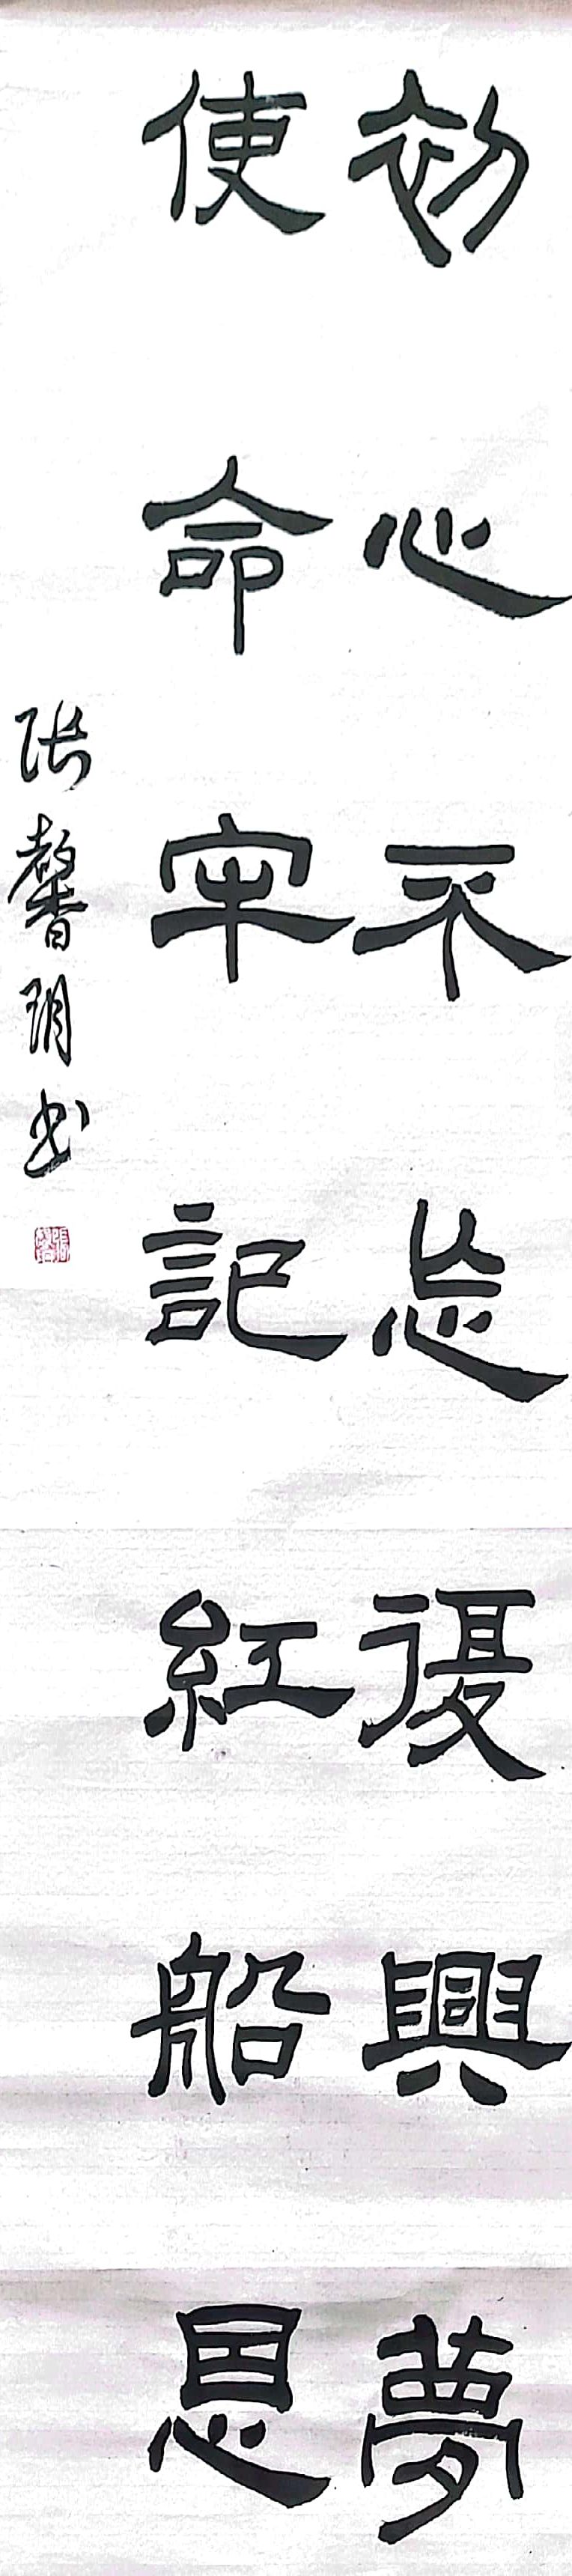 初心不忘復興夢
使命牢記紅船恩
张馨玥书